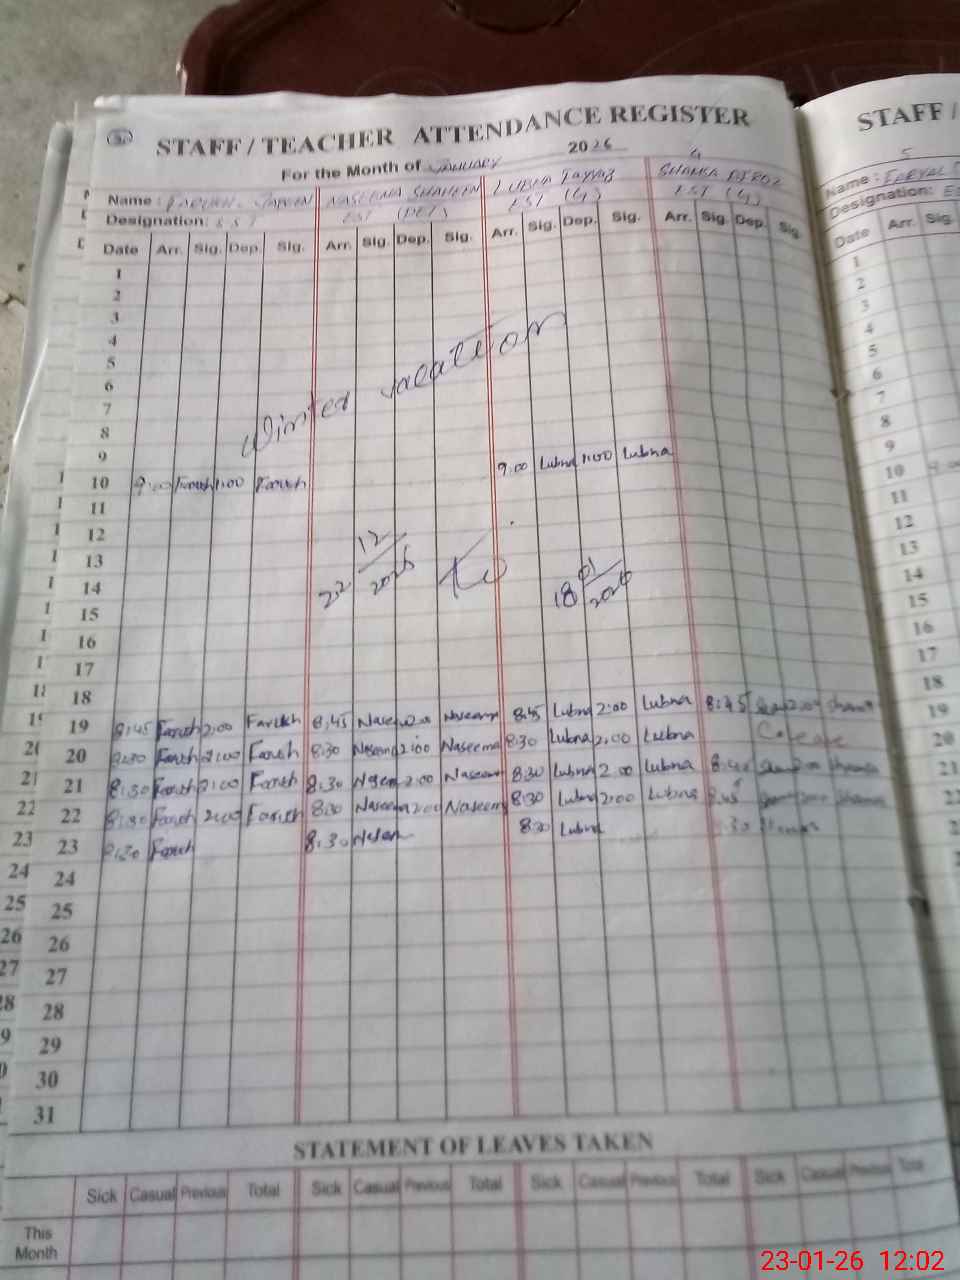 STAFF / TEACHER ATTENDANCE REGISTER
For the Month of January 2026
Name : NASEEMA SHAHEEN LUBNA TAYYAB SHAMSA
Designation: EST EST (PET) EST (G) EST (G)
Date Arr. Sig. Dep. Sig. Arr. Sig. Dep. Sig. Arr. Sig. Dep. Sig. Arr. Sig. Dep. Sig.
1
2
3
4
5
6
7
8
9
Winter vacation
10 9:00 Farukh 1:00 Farukh 9:00 Lubna 1:00 Lubna
11
12
13
14
22 12/2025 18 01/2026
15
16
17
18
19 8:45 Farukh 2:00 Farukh 8:45 Naseema 2:00 Naseema 8:45 Lubna 2:00 Lubna 8:45 2:00 Shamsa
20 8:30 Farukh 2:00 Farukh 8:30 Naseema 2:00 Naseema 8:30 Lubna 2:00 Lubna C. Leave
21 8:30 Farukh 2:00 Farukh 8:30 Naseem 2:00 Naseema 8:30 Lubna 2:00 Lubna 2:00 Shamsa
22 8:30 Farukh 2:00 Farukh 8:30 Naseema 2:00 Naseema 8:30 Lubna 2:00 Lubna 8:45 2:00 Shamsa
23 8:30 Farukh 8:30 8:30 Lubna 8:30
24
25
26
27
28
29
30
31
STATEMENT OF LEAVES TAKEN
Sick Casual Previous Total Sick Casual Previous Total Sick Casual Previous Total Sick Casual Previous Total
This
Month
STAFF /
5
Name :
Designation:
Date Arr. Sig.
1
2
3
4
5
6
7
8
9
10 9:00
11
12
13
14
15
16
17
18
19
20
21
23-01-26 12:02